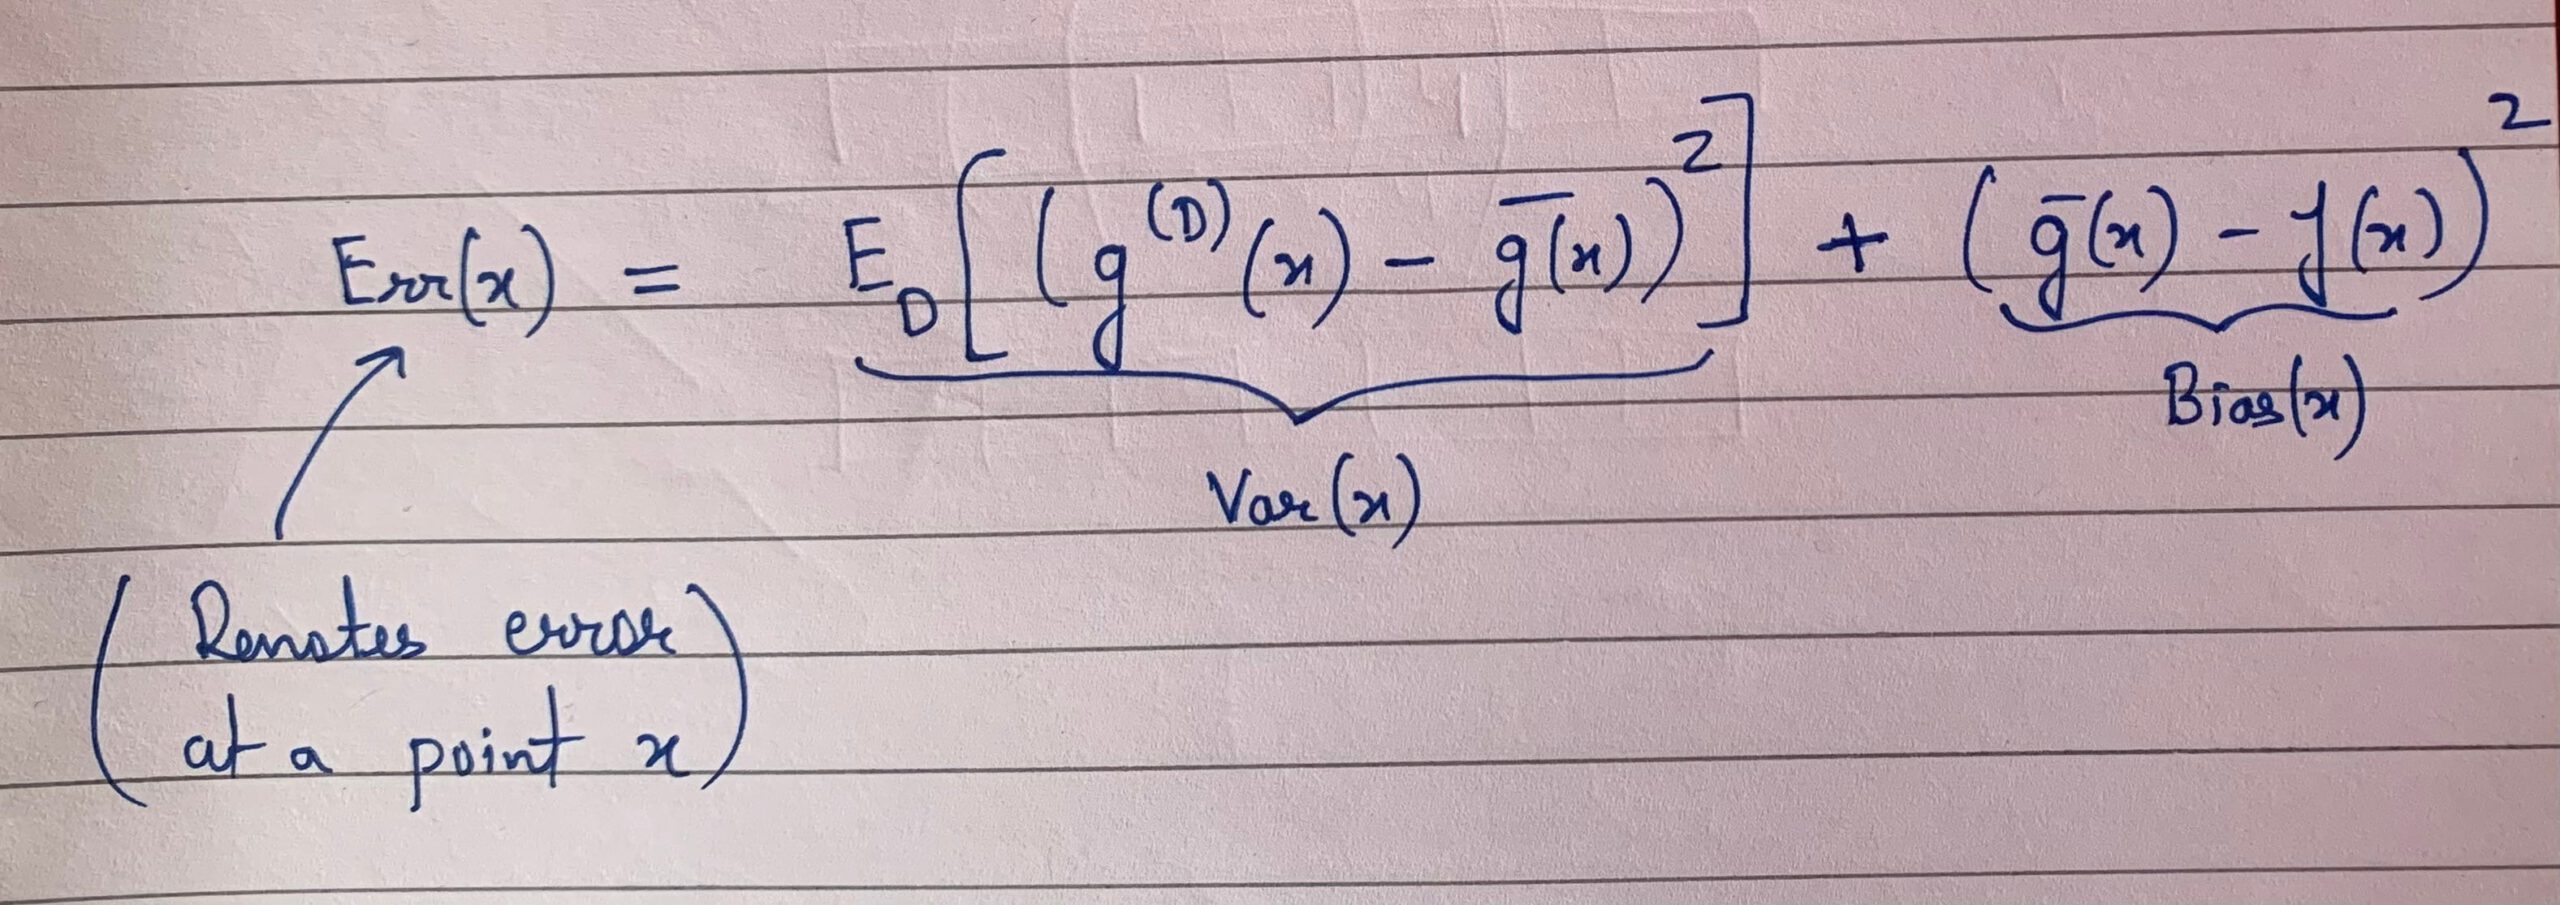 Err(x) = E_D[(g^(D)(x) - g̅(x))^2] + (g̅(x) - f(x))^2
Var(x)
Bias(x)
(Denotes error
at a point x)